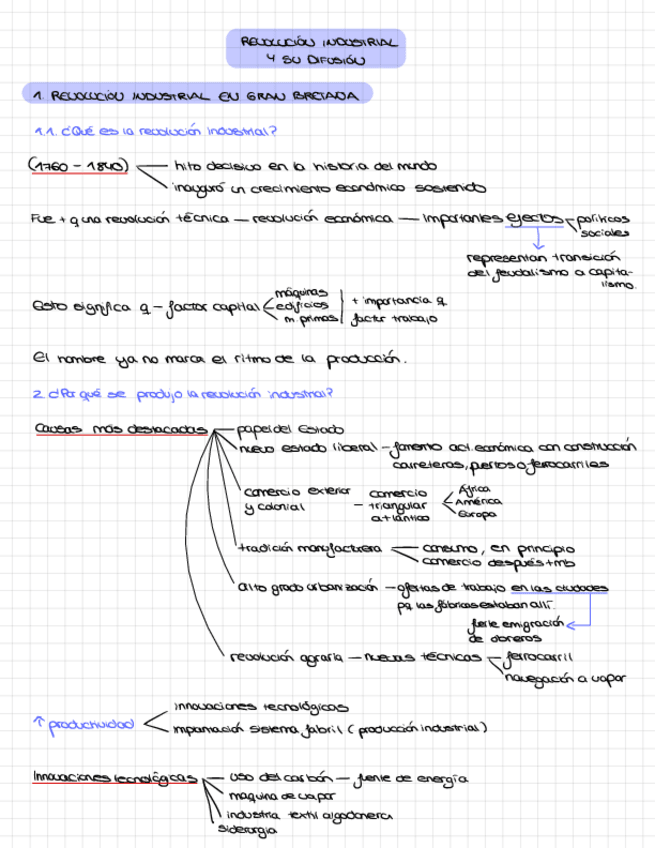 REVOLUCIÓN INDUSTRIAL
Y SU DIFUSIÓN
1. REVOLUCIÓN INDUSTRIAL EN GRAN BRETAÑA
1.1. ¿Qué es la revolución industrial?
(1760 - 1840) — hito decisivo en la historia del mundo
inauguró un crecimiento económico sostenido
Fue + q una revolución técnica — revolución económica — importantes efectos políticos
sociales
representan transición
del feudalismo a capita-
lismo.
Esto significa q - factor capital máquinas
edificios
m. primas
+ importancia q
factor trabajo
El hombre ya no marca el ritmo de la producción.
2. ¿Por qué se produjo la revolución industrial?
Causas más destacadas — papel del Estado
nuevo estado liberal - fomento act. económica con construcción
carreteras, puertos o ferrocarriles
comercio exterior
y colonial
- comercio
triangular
atlántico
África
América
Europa
tradición manufacturera consumo, en principio
comercio después tmb
alto grado urbanización - ofertas de trabajo en las ciudades
pq las fábricas estaban allí.
fuerte emigración
de obreros
revolución agraria — nuevas técnicas ferrocarril
navegación a vapor
↑ productividad innovaciones tecnológicas
implantación sistema fabril (producción industrial)
Innovaciones tecnológicas — uso del carbón — fuente de energía
maquina de vapor
industria textil algodonera
siderurgia